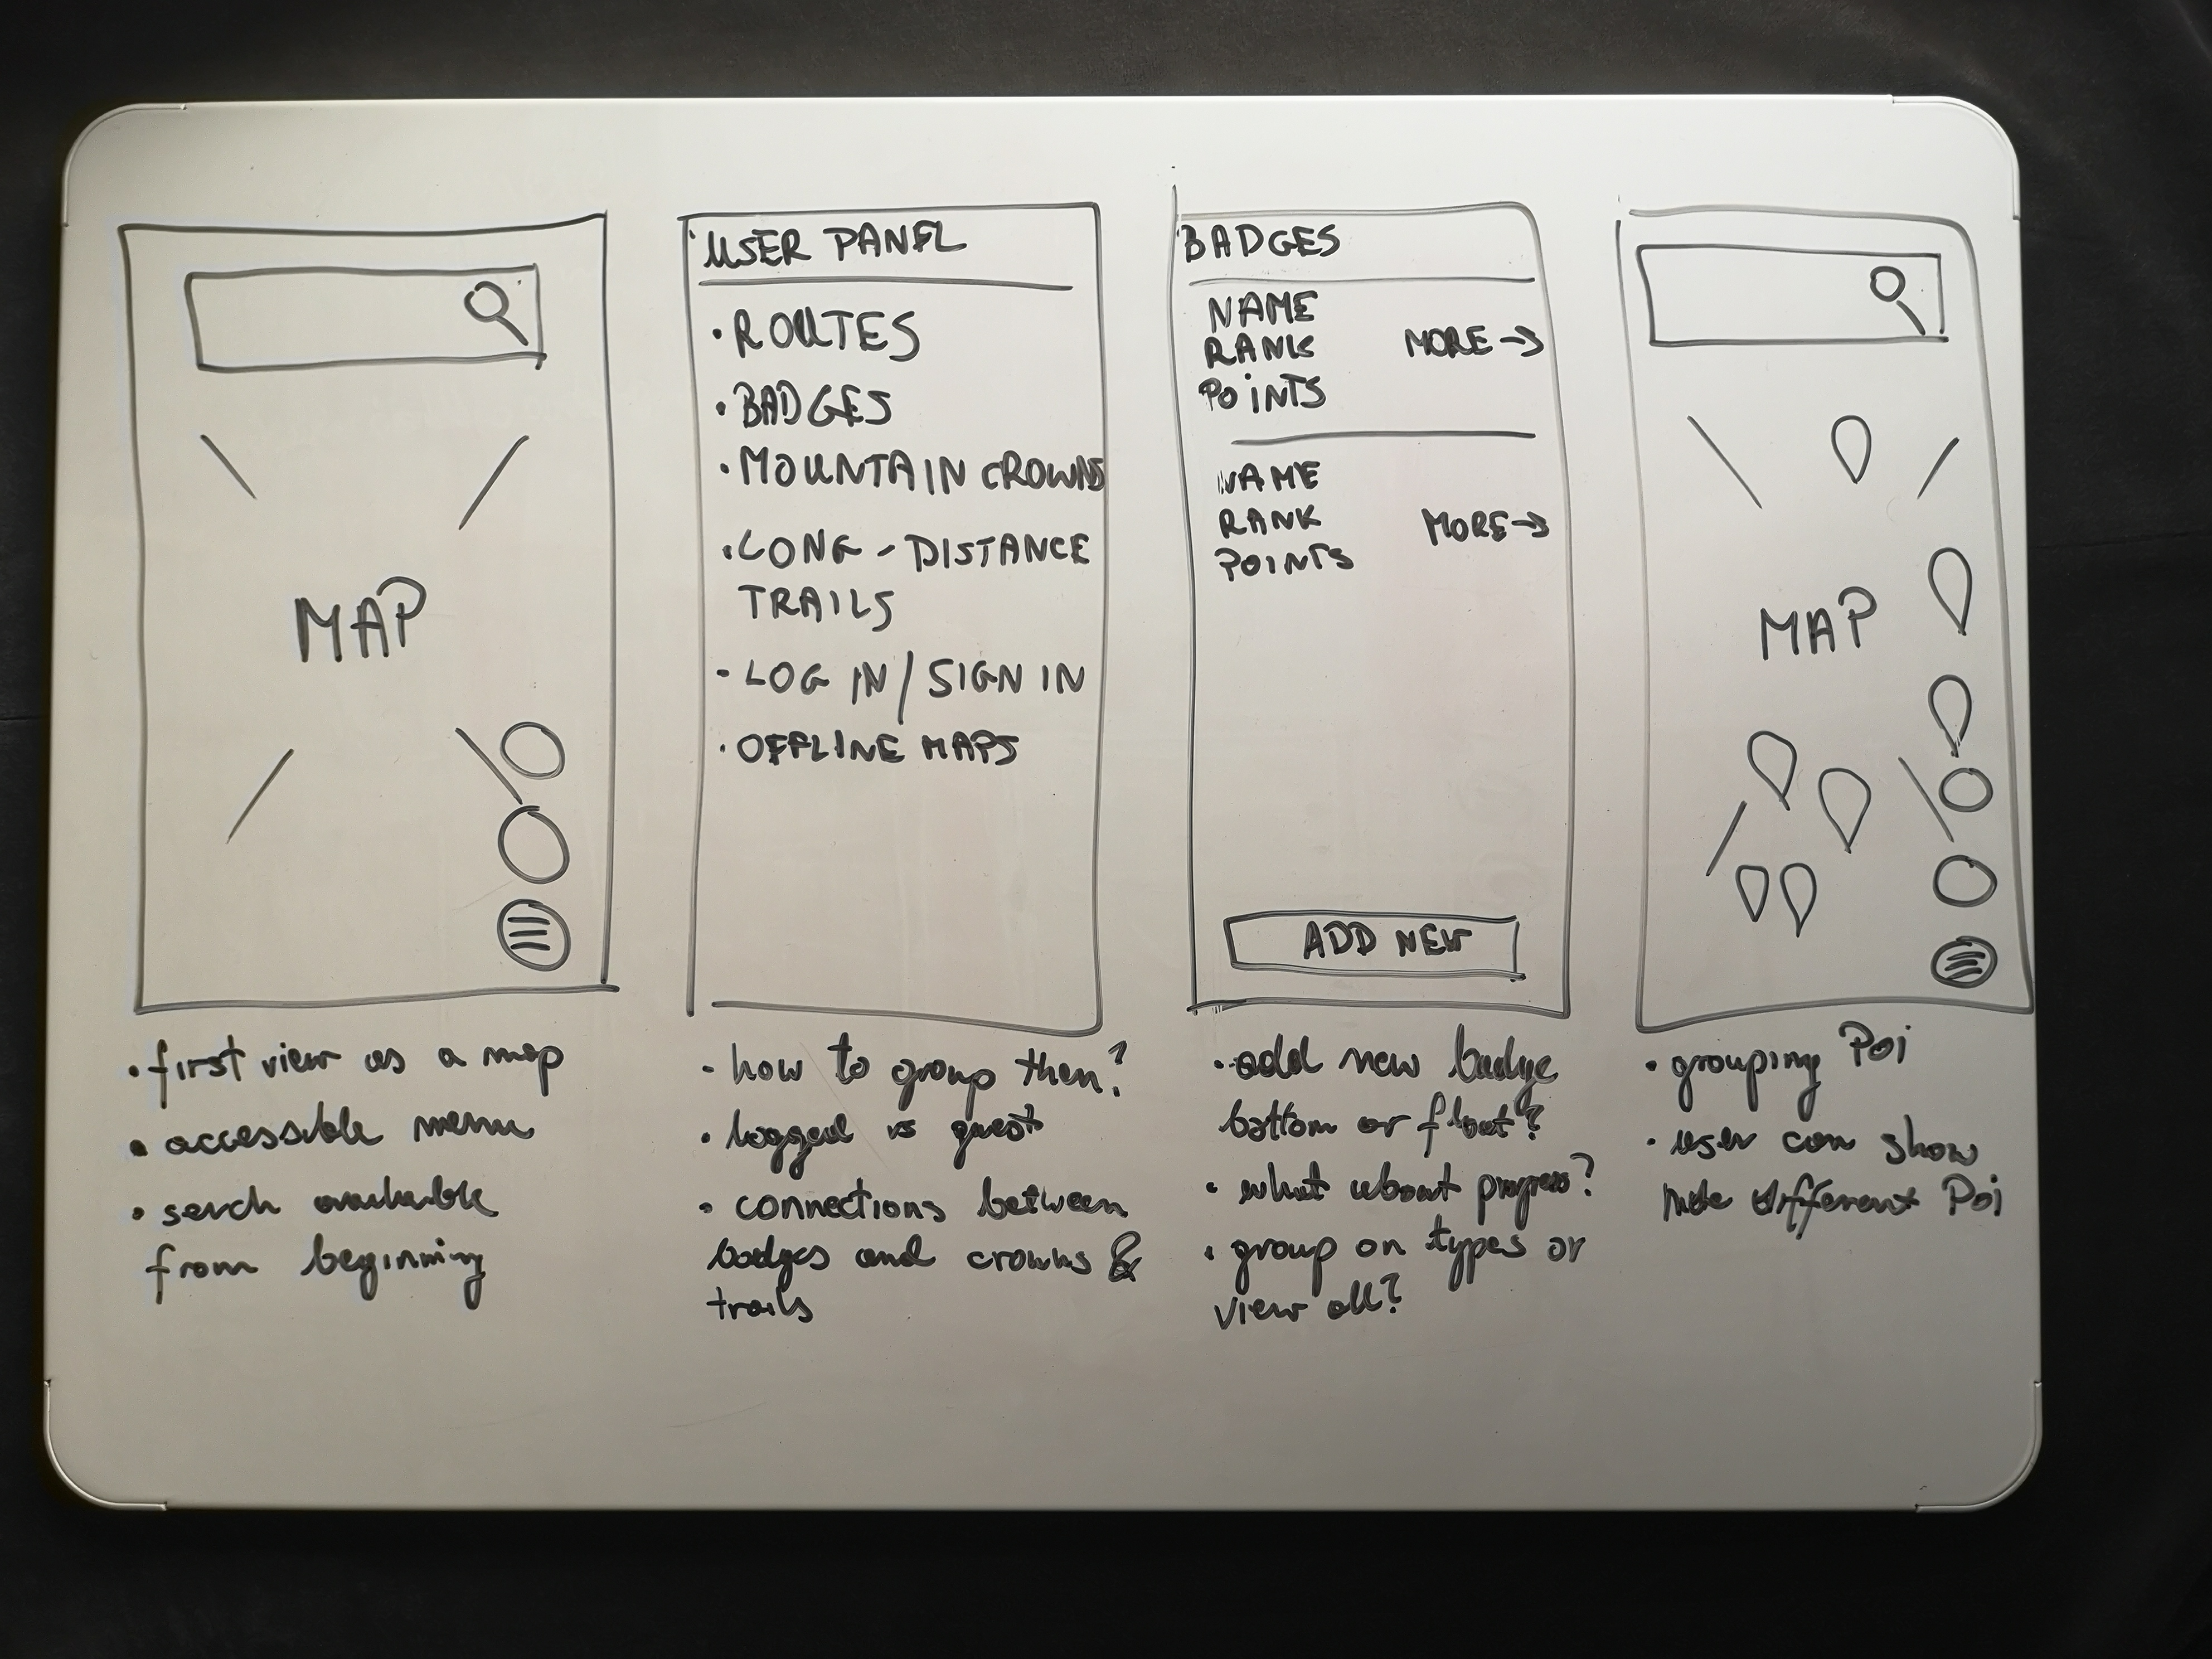 MAP
• first view as a map
• accessible menu
• serch available
from beginning
USER PANEL
• ROUTES
• BADGES
• MOUNTAIN CROWNS
• LONG - DISTANCE
TRAILS
- LOG IN / SIGN IN
• OFFLINE MAPS
- how to group them?
• logged vs guest
• connections between
badges and crowns &
trails
BADGES
NAME
RANK MORE →
POINTS
NAME
RANK MORE →
POINTS
ADD NEW
• add new badge
bottom or float?
• what about progress?
• group on types or
view all?
MAP
• grouping Poi
• user can show
hide different Poi